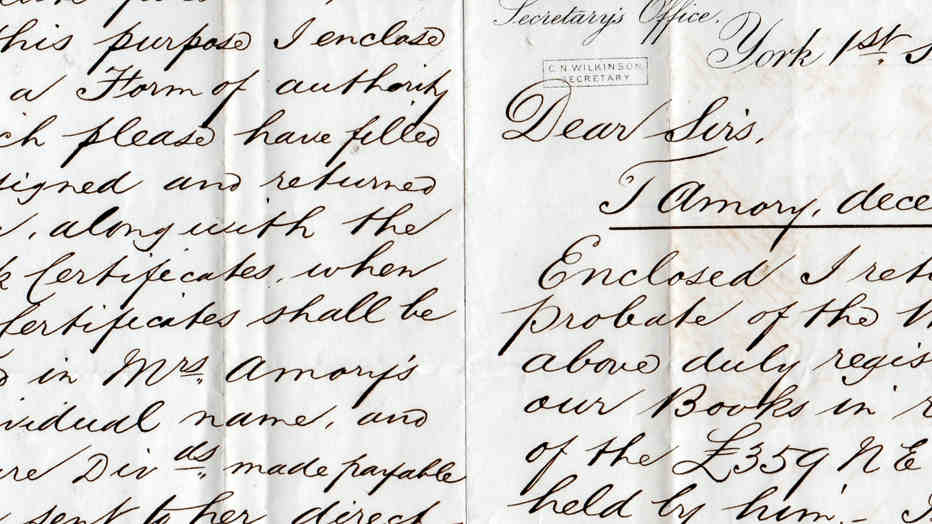 this purpose I enclose
a Form of authority
please have filled
signed and returned
along with the
Certificates, when
Certificates shall be
in Mrs. Amory's
name, and
Divds. made payable
sent to her direct
Secretary's Office.
York 1st
C.N. WILKINSON,
SECRETARY
Dear Sirs,
T Amory, dece
Enclosed I ret
probate of the W
above duly regis
our Books in r
of the £359 N E
held by him. -